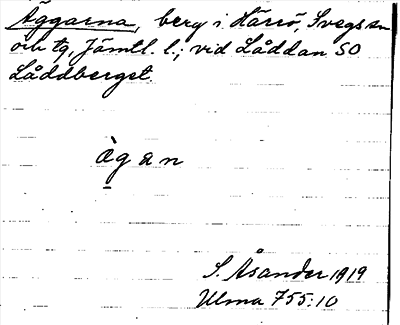 Äggarna, berg i Härrö, Svegs sn
och tg, Jämtl. l.; vid Låddan SO
Låddberget.
ägan
S. Åsander 1919
Ulma 755:10